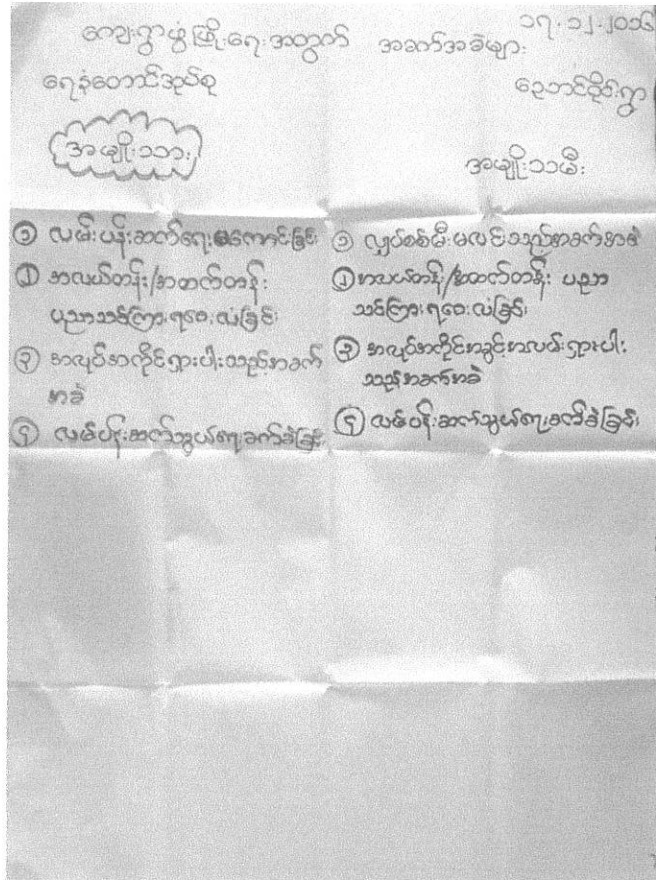 ၁၇.၁၂.၂၀၁၆
ကျေးရွာဖွံ့ဖြိုးရေးအတွက် အခက်အခဲများ
ရေနံတောင်အုပ်စု
ညောင်ဝိုင်းရွာ
အမျိုးသား
① လမ်းပန်းဆက်ရေးမကောင်းခြင်း
② အလယ်တန်း/အထက်တန်း
ပညာသင်ကြားရဝေးလံခြင်း
③ အလုပ်အကိုင်ရှားပါးသည့်အခက်
အခဲ
④ လမ်းပန်းဆက်သွယ်ရေးခက်ခဲခြင်း
အမျိုးသမီး
① လျှပ်စစ်မီးမလင်းသည့်အခက်အခဲ
② အလယ်တန်း/အထက်တန်း ပညာ
သင်ကြားရဝေးလံခြင်း
③ အလုပ်အကိုင်အခွင့်အလမ်းရှားပါး
သည့်အခက်အခဲ
④ လမ်းပန်းဆက်သွယ်ရေးခက်ခဲခြင်း